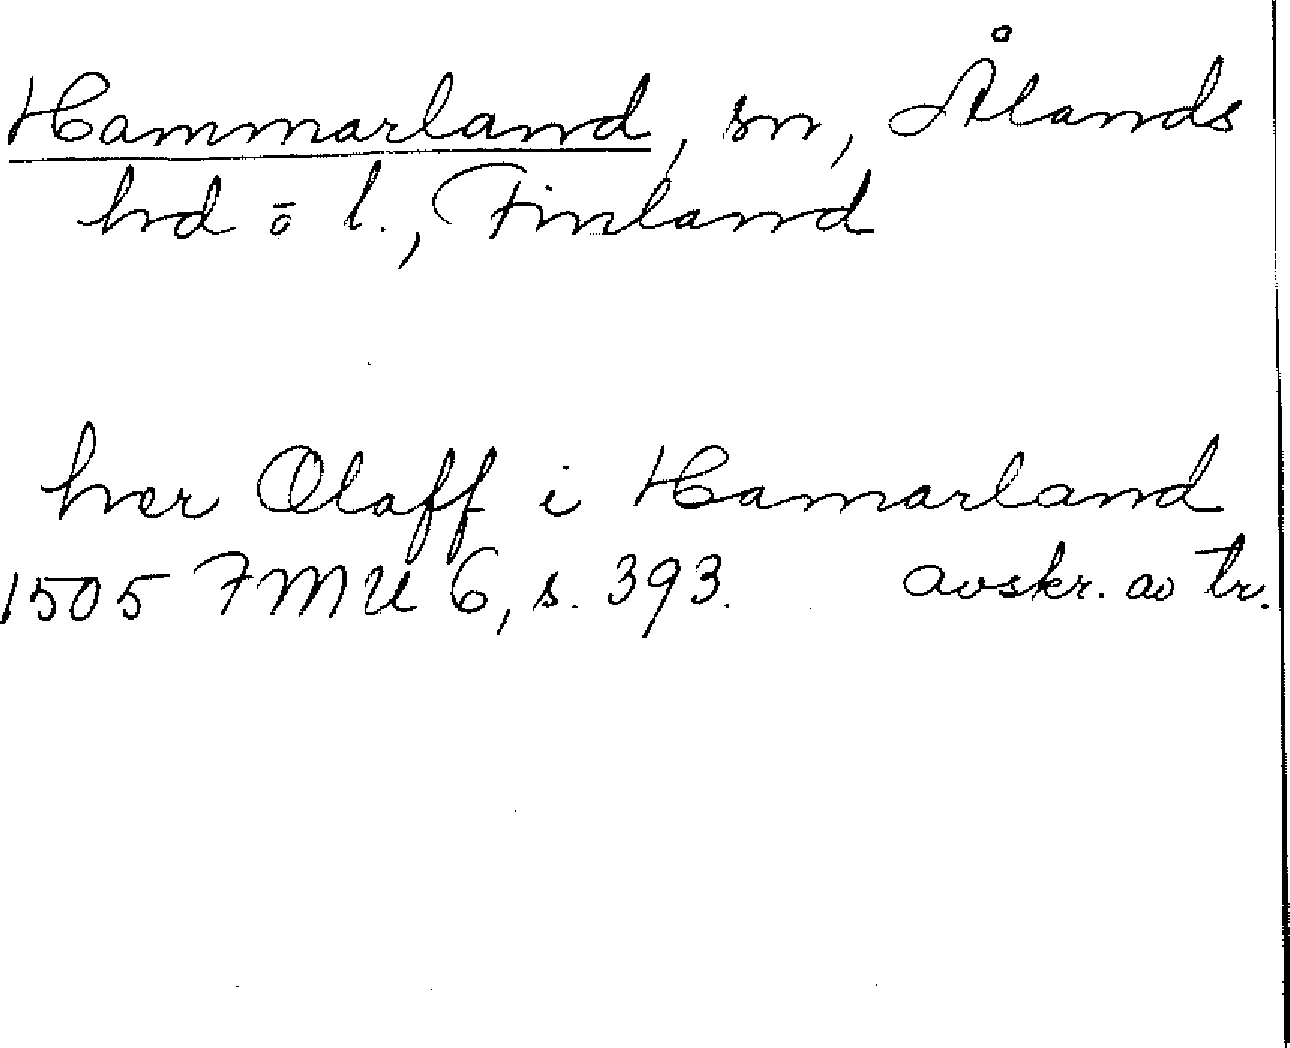 Hammarland, sn, Ålands
hd ō l., Finland
her Olaff i Hamarland
1505 FMU 6, s. 393. avskr. av tr.